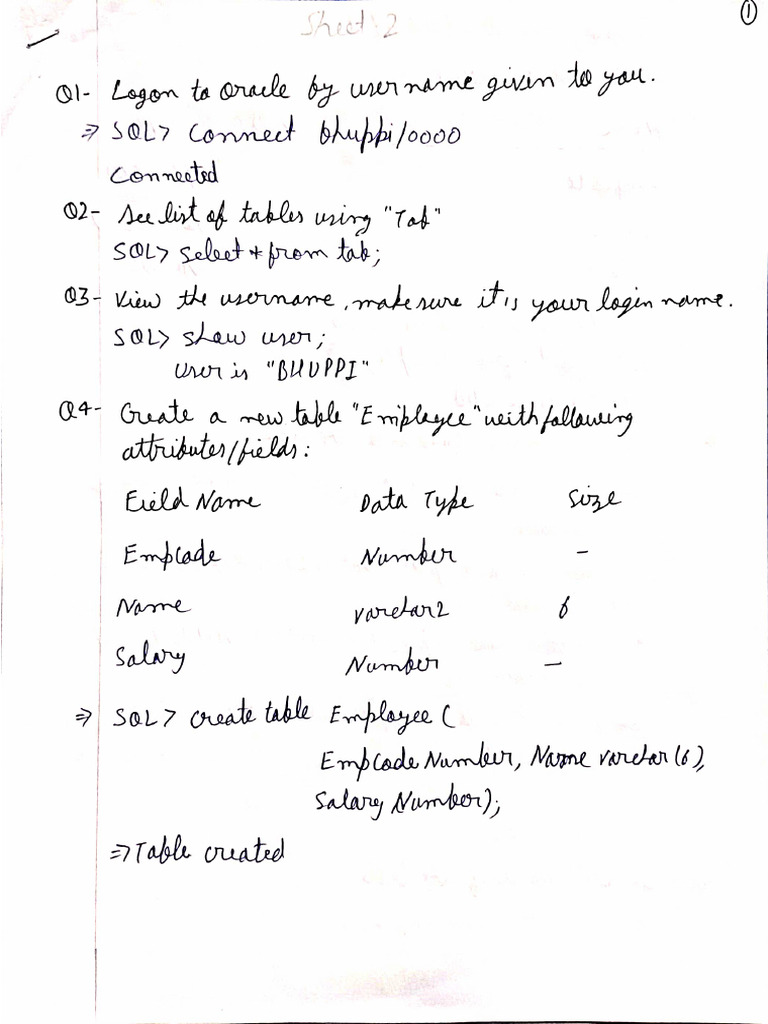 ①
Sheet 2
Q1- Logon to oracle by username given to you.
⇒ SQL> Connect bhuppi/0000
Connected
Q2- See list of tables using "Tab"
SQL> select * from tab;
Q3- View the username, make sure it is your login name.
SQL> show user;
User is "BHUPPI"
Q4- Create a new table "Employee" with following
attributes/fields:
Field Name Data Type Size
Empcode Number -
Name varchar2 6
Salary Number -
⇒ SQL> create table Employee (
Empcode Number, Name varchar (6),
Salary Number);
⇒ Table created